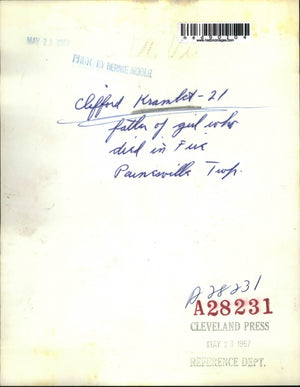 MAY 23 1967
PHOTO BY BERNIE NOBLE
Clifford Kramlet - 21
father of girl who
died in Fire
Painesville Twp.
A28231
A28231
CLEVELAND PRESS
MAY 23 1967
REFERENCE DEPT.